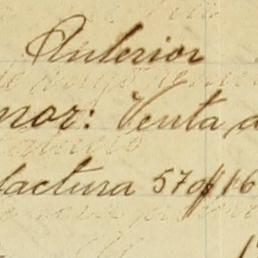 Anterior
nor: Venta d
factura 570$16